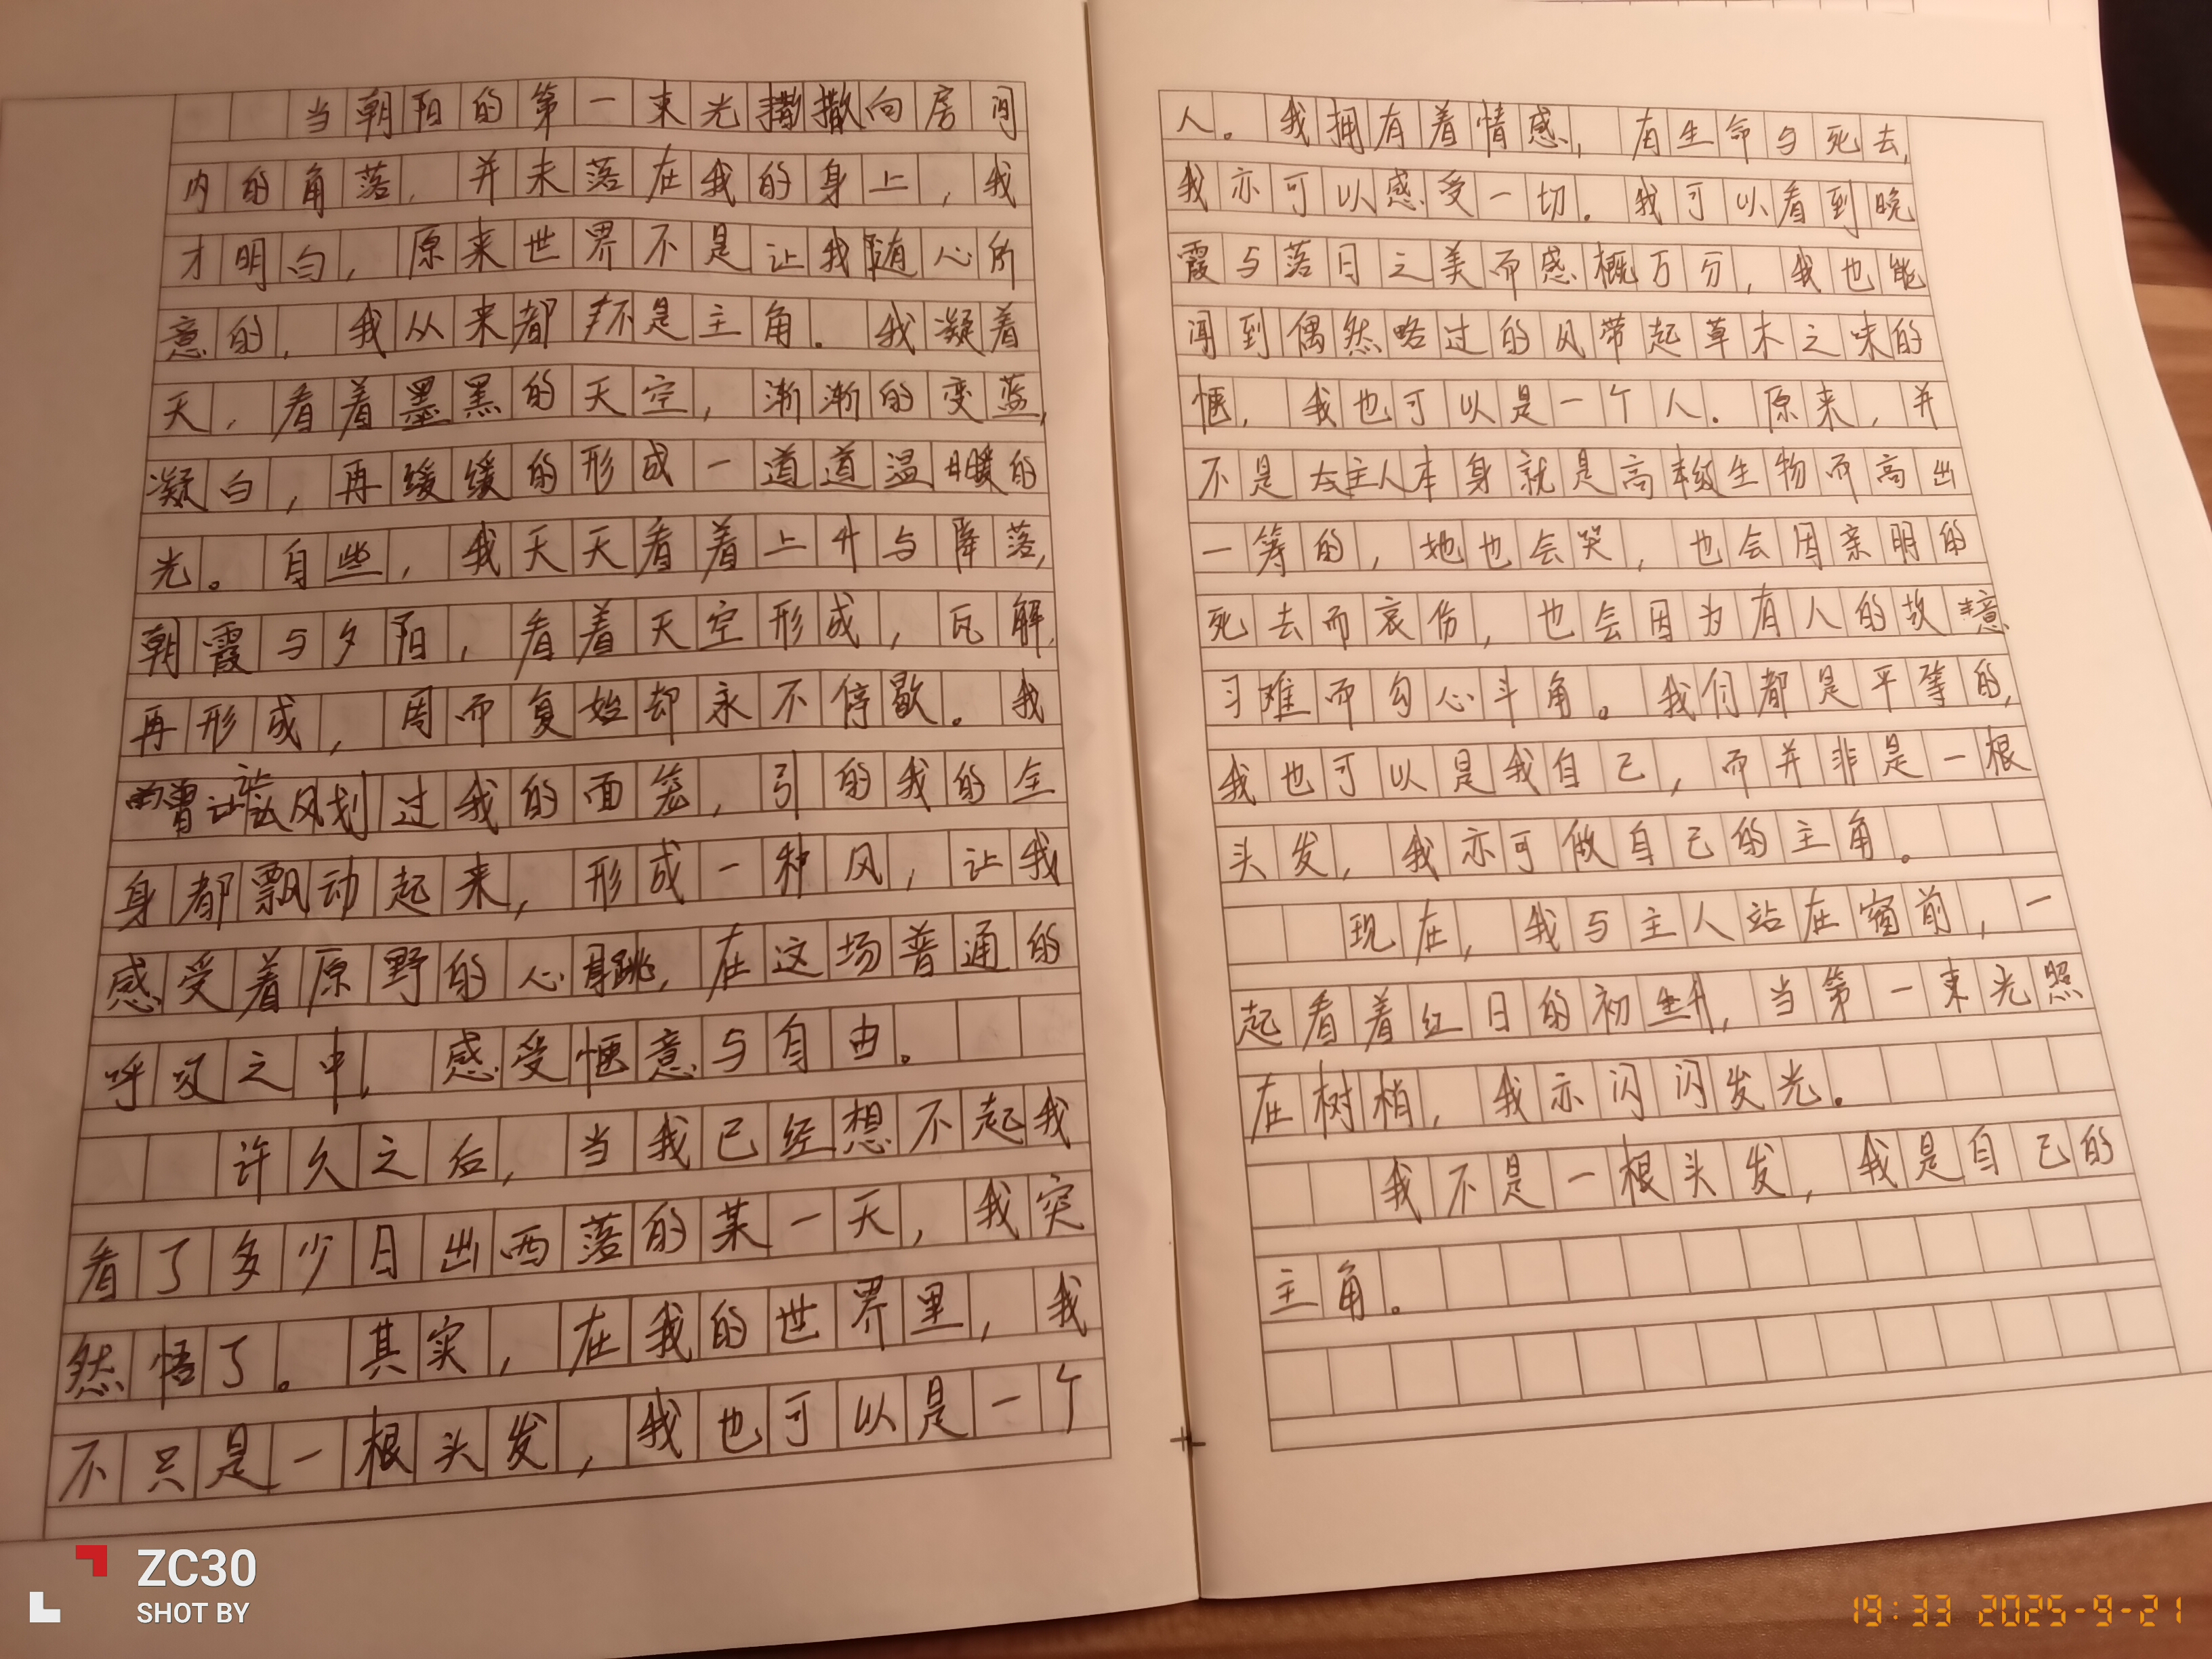 当朝阳的第一束光撒向房间
内的角落，并未落在我的身上，我
才明白，原来世界不是让我随心所
意的，我从来都不是主角。我凝着
天，看着墨黑的天空，渐渐的变蓝，
凝白，再缓缓的形成一道道温暖的
光。自此，我天天看着上升与降落，
朝霞与夕阳，看着天空形成，瓦解，
再形成，周而复始却永不停歇。我
曾让风划过我的面笼，引的我的全
身都飘动起来，形成一种风，让我
感受着原野的心跳，在这场普通的
呼吸之中，感受惬意与自由。
许久之后，当我已经想不起我
看了多少日出西落的某一天，我突
然悟了。其实，在我的世界里，我
不只是一根头发，我也可以是一个
人。我拥有着情感，有生命与死去，
我亦可以感受一切。我可以看到晚
霞与落日之美而感概万分，我也能
闻到偶然略过的风带起草木之味的
惬，我也可以是一个人。原来，并
不是主人本身就是高级生物而高出
一等的，她也会哭，也会因亲朋的
死去而哀伤，也会因为有人的故意
刁难而勾心斗角。我们都是平等的，
我也可以是我自己，而并非是一根
头发，我亦可做自己的主角。
现在，我与主人站在窗前，一
起看着红日的初升，当第一束光照
在树梢，我亦闪闪发光。
我不是一根头发，我是自己的
主角。
ZC30
SHOT BY
19:33 2025-9-21